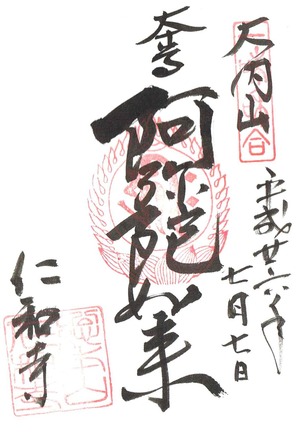 大内山
平成廿六年
七月七日
奉
阿弥陀如来
仁和寺